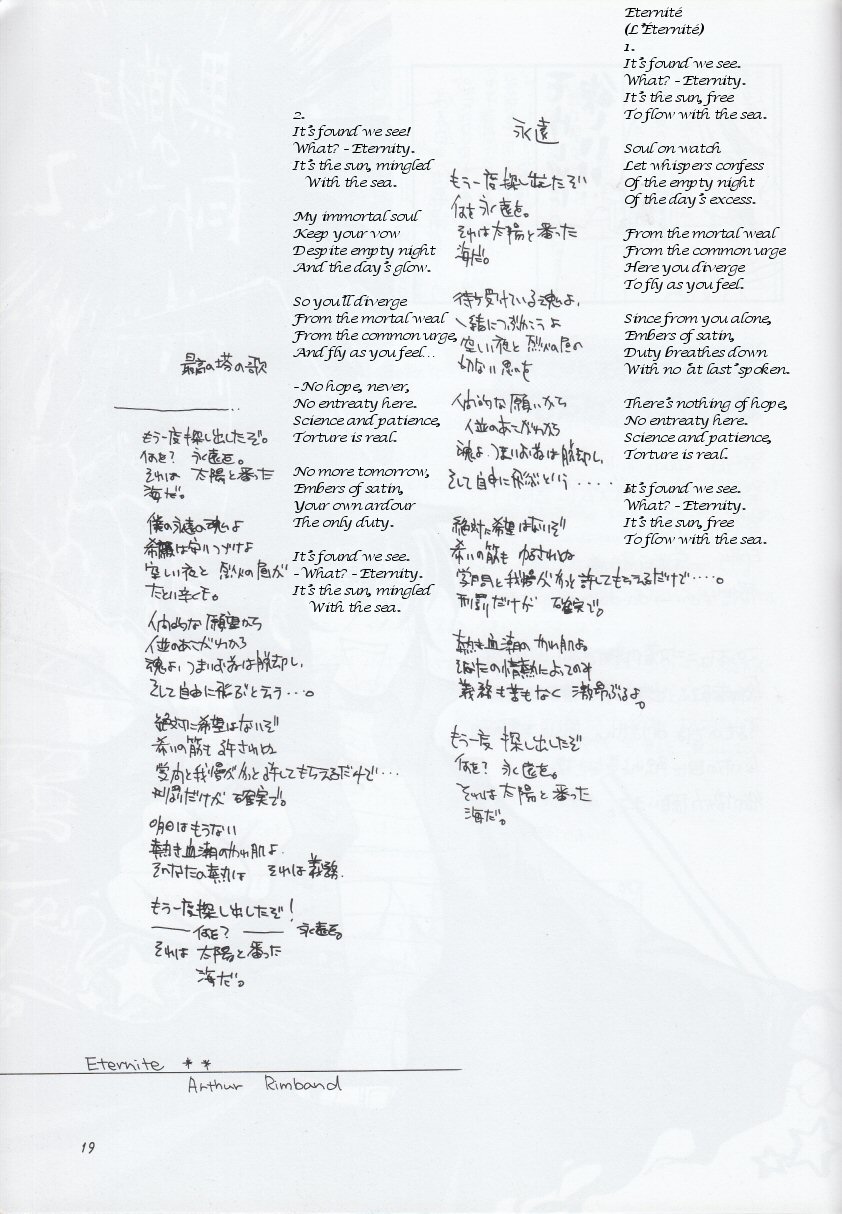 Eternité
(L'Éternité)
1.
It's found we see.
What? - Eternity.
It's the sun, free
To flow with the sea.
Soul on watch
Let whispers confess
Of the empty night
Of the day's excess.
From the mortal weal
From the common urge
Here you diverge
To fly as you feel.
Since from you alone,
Embers of satin,
Duty breathes down
With no 'at last' spoken.
There's nothing of hope,
No entreaty here.
Science and patience,
Torture is real.
It's found we see.
What? - Eternity.
It's the sun, free
To flow with the sea.
永遠
もう一度探し出したぞ
何を 永遠を。
それは太陽と番った
海だ。
待ち受けている魂よ、
一緒につぶやこうよ
空しい夜と烈火の昼の
切ない思いを
人間的な願いから
人並のあこがれから
魂よ、つまりお前は脱却し、
そして自由に飛ぶという・・・・
絶対に希望はないぞ
希いの筋もゆるされぬ
学問と我慢がやっと許してもらえるだけで・・・・。
刑罰だけが 確実で。
熱き血潮のやわ肌よ
あなたの情熱によってのみ
義務も苦もなく 激昂ぶるよ。
もう一度 探し出したぞ
何を? 永遠を。
それは太陽と番った
海だ。
2.
It's found we see!
What? - Eternity.
It's the sun, mingled
With the sea.
My immortal soul
Keep your vow
Despite empty night
And the day's glow.
So you'll diverge
From the mortal weal
From the common urge,
And fly as you feel...
- No hope, never,
No entreaty here.
Science and patience,
Torture is real.
No more tomorrow,
Embers of satin,
Your own ardour
The only duty.
It's found we see.
- What? - Eternity.
It's the sun, mingled
With the sea.
最高の塔の歌
もう一度探し出したぞ。
何を? 永遠を。
それは 太陽と番った
海だ。
僕の永遠の魂よ
希願は守りつづけよ
空しい夜と 烈火の昼が
たとい辛くも。
人間的な願望から
人並のあこがれから
魂よ、つまりお前は脱却し、
そして自由に飛ぶと云う・・・。
絶対に希望はないぞ
希いの筋も許されぬ
学問と我慢がやっと許してもらえるだけで・・・
刑罰だけが 確実で。
明日はもうない
熱き血潮のやわ肌よ
そなたの熱は それは義務。
もう一度探し出したぞ!
―― 何を? ―― 永遠を。
それは 太陽と番った
海だ。
Eternite **
Arthur Rimband
19